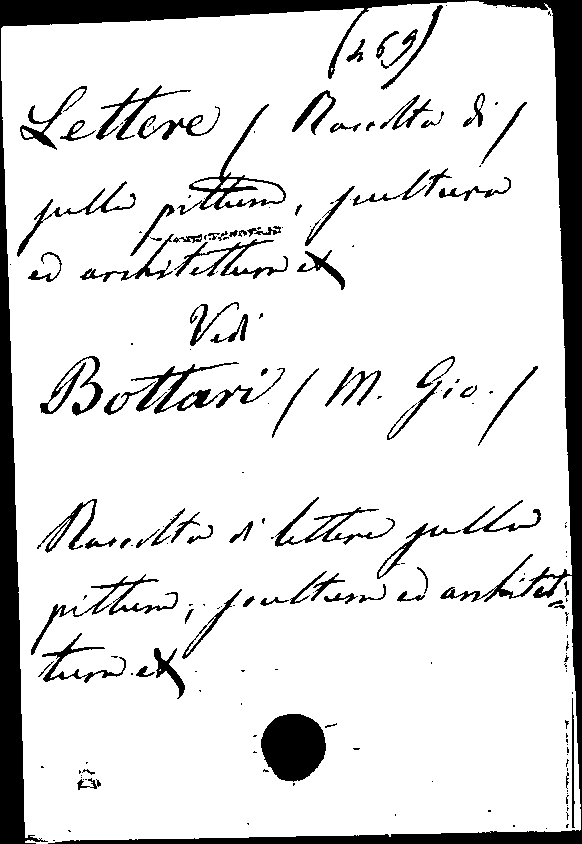 (269)
Lettere (Raccolta di)
sulla pittura, scultura
ed architettura etc
Vedi
Bottari (M. Gio.)
Raccolta di lettere sulla
pittura, scultura ed architet=
tura etc